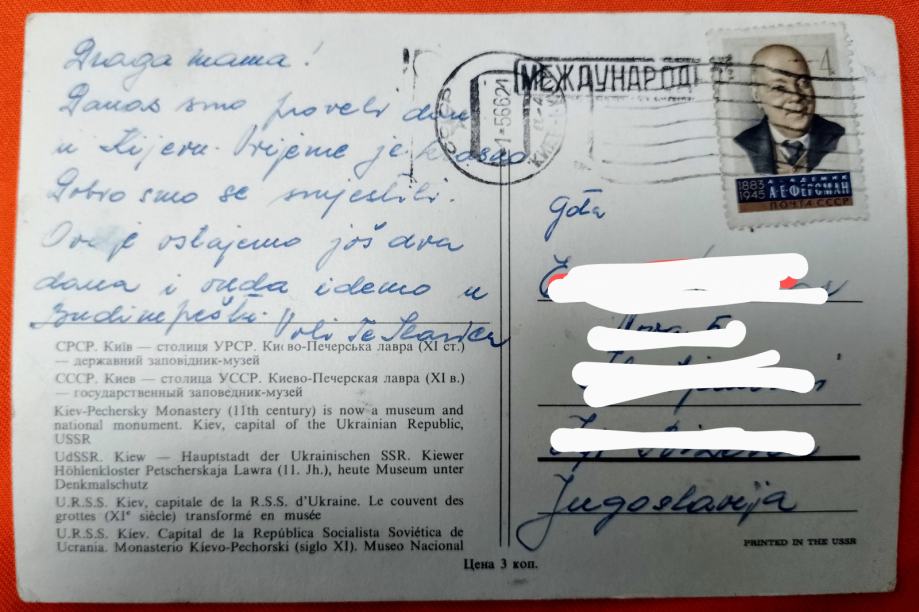 Draga mama!
Danas smo proveli dan
u Kijevu. Vrijeme je krasno
Dobro smo se smjestili.
Ovdje ostajemo još dva
dana i onda idemo u
Budimpeštu. Voli Te Slavica
СРСР. Київ — столиця УРСР. Києво-Печерська лавра (XI ст.)
— державний заповідник-музей
СССР. Киев — столица УССР. Киево-Печерская лавра (XI в.)
— государственный заповедник-музей
Kiev-Pechersky Monastery (11th century) is now a museum and
national monument. Kiev, capital of the Ukrainian Republic,
USSR
UdSSR. Kiew — Hauptstadt der Ukrainischen SSR. Kiewer
Höhlenkloster Petscherskaja Lawra (11. Jh.), heute Museum unter
Denkmalschutz
U.R.S.S. Kiev, capitale de la R.S.S. d'Ukraine. Le couvent des
grottes (XIe siècle) transformé en musée
U.R.S.S. Kiev. Capital de la República Socialista Soviética de
Ucrania. Monasterio Kievo-Pechorski (siglo XI). Museo Nacional
Цена 3 коп.
СССР
МЕЖДУНАРОД
4
1883
1945
АКАДЕМИК
А·Е·ФЕРСМАН
ПОЧТА СССР
Gđa
Jugoslavija
PRINTED IN THE USSR